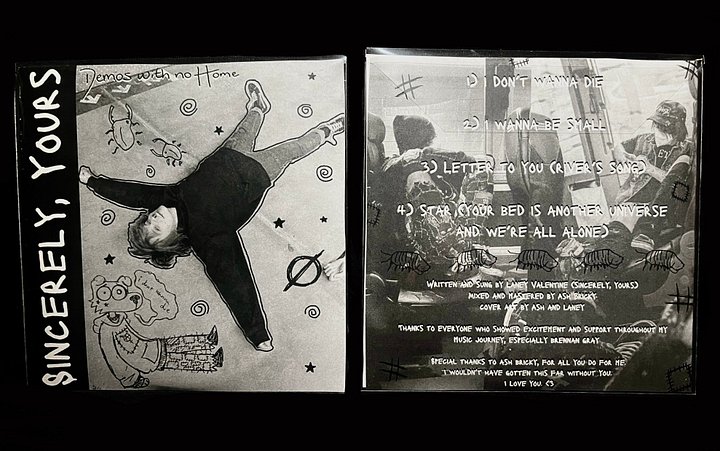 SINCERELY, YOURS
Demos with no Home
I don't wanna die
1) I DON'T WANNA DIE
2) I WANNA BE SMALL
3) LETTER TO YOU (RIVER'S SONG)
4) STAR (YOUR BED IS ANOTHER UNIVERSE
AND WE'RE ALL ALONE)
WRITTEN AND SUNG BY LANEY VALENTINE (SINCERELY, YOURS)
MIXED AND MASTERED BY ASH BRICKY
COVER ART BY ASH AND LANEY
THANKS TO EVERYONE WHO SHOWED EXCITEMENT AND SUPPORT THROUGHOUT MY
MUSIC JOURNEY, ESPECIALLY BRENNAN GRAY
SPECIAL THANKS TO ASH BRICKY, FOR ALL YOU DO FOR ME.
I WOULDN'T HAVE GOTTEN THIS FAR WITHOUT YOU.
I LOVE YOU. <3